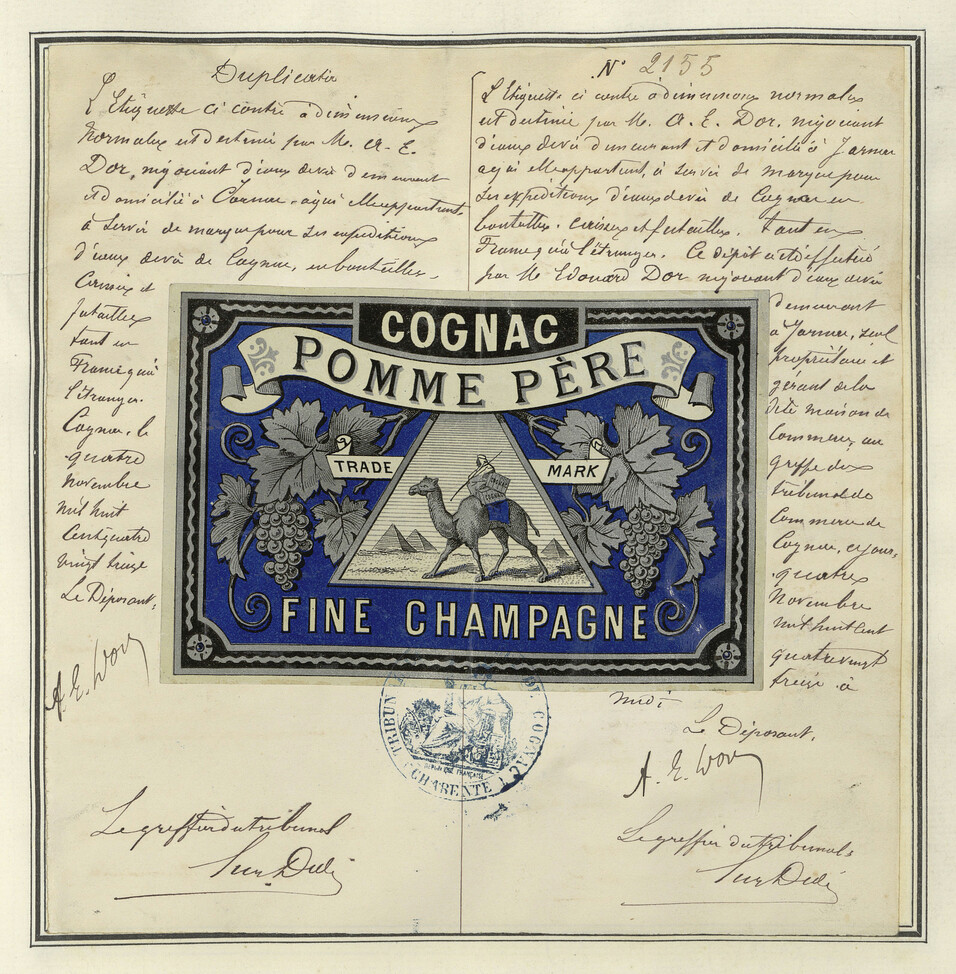 Duplicata
L'étiquette ci contre à dimensions
normales est destinée par M. A. E.
Dor, négociant d'eaux de vie demeurant
et domicilié à Jarnac, à qui elle appartient,
à servir de marque pour ses expéditions
d'eaux de vie de Cognac, en bouteilles,
Caisses et
futailles
tant en
France qu'à
l'étranger.
Cognac, le
quatre
Novembre
mil huit
Cent quatre
vingt treize
Le Déposant,
A. E. Dor
Le greffier du tribunal
N° 2155
L'étiquette ci contre à dimensions normales
est destinée par M. A. E. Dor, négociant
d'eaux de vie demeurant et domicilié à Jarnac
à qui elle appartient, à servir de marque pour
ses expéditions d'eaux de vie de Cognac en
bouteilles, caisses et futailles, tant en
France qu'à l'étranger. Ce dépôt a été effectué
par M. Edouard Dor négociant d'eaux de vie
demeurant
à Jarnac, seul
propriétaire et
gérant de la
dite maison de
Commerce, au
greffe du
tribunal de
Commerce de
Cognac, ce jour,
quatre
Novembre
mil huit cent
quatre vingt
treize à
midi
Le Déposant,
A. E. Dor
Le greffier du tribunal
COGNAC
POMME PÈRE
TRADE MARK
COGNAC
FINE CHAMPAGNE
TRIBUN DE COGNAC
RÉPUBLIQUE FRANÇAISE
CHARENTE